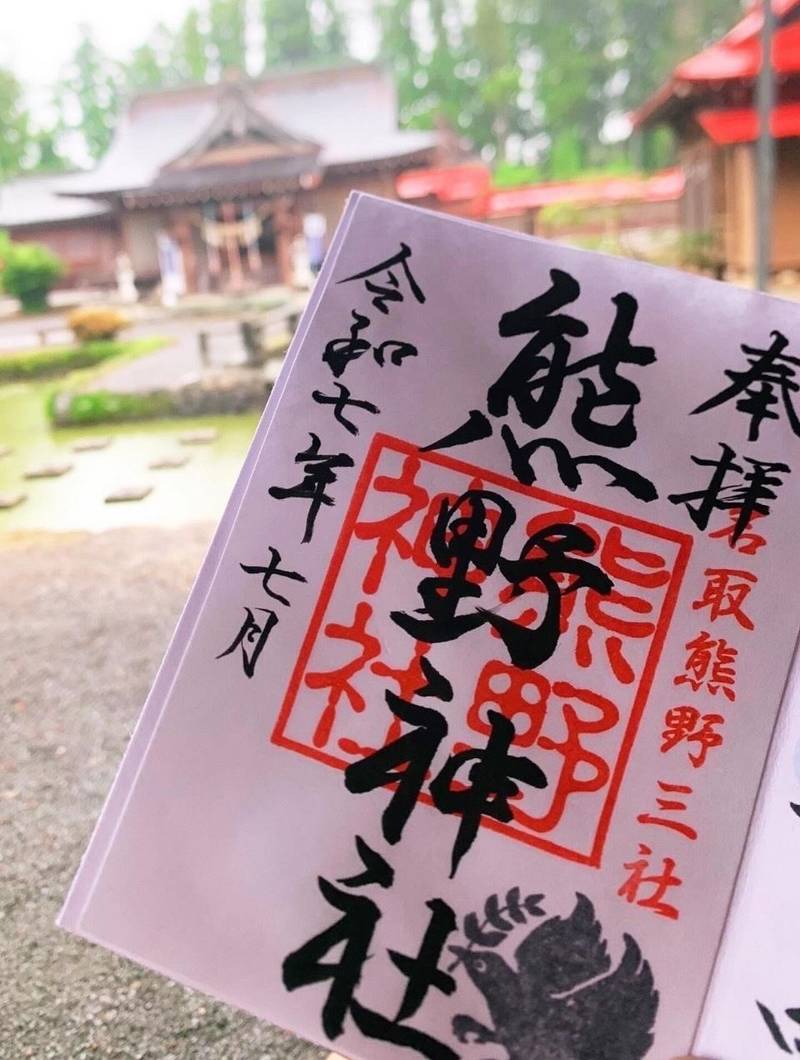 奉拝
名取熊野三社
熊野神社
熊野
神社
令和七年七月